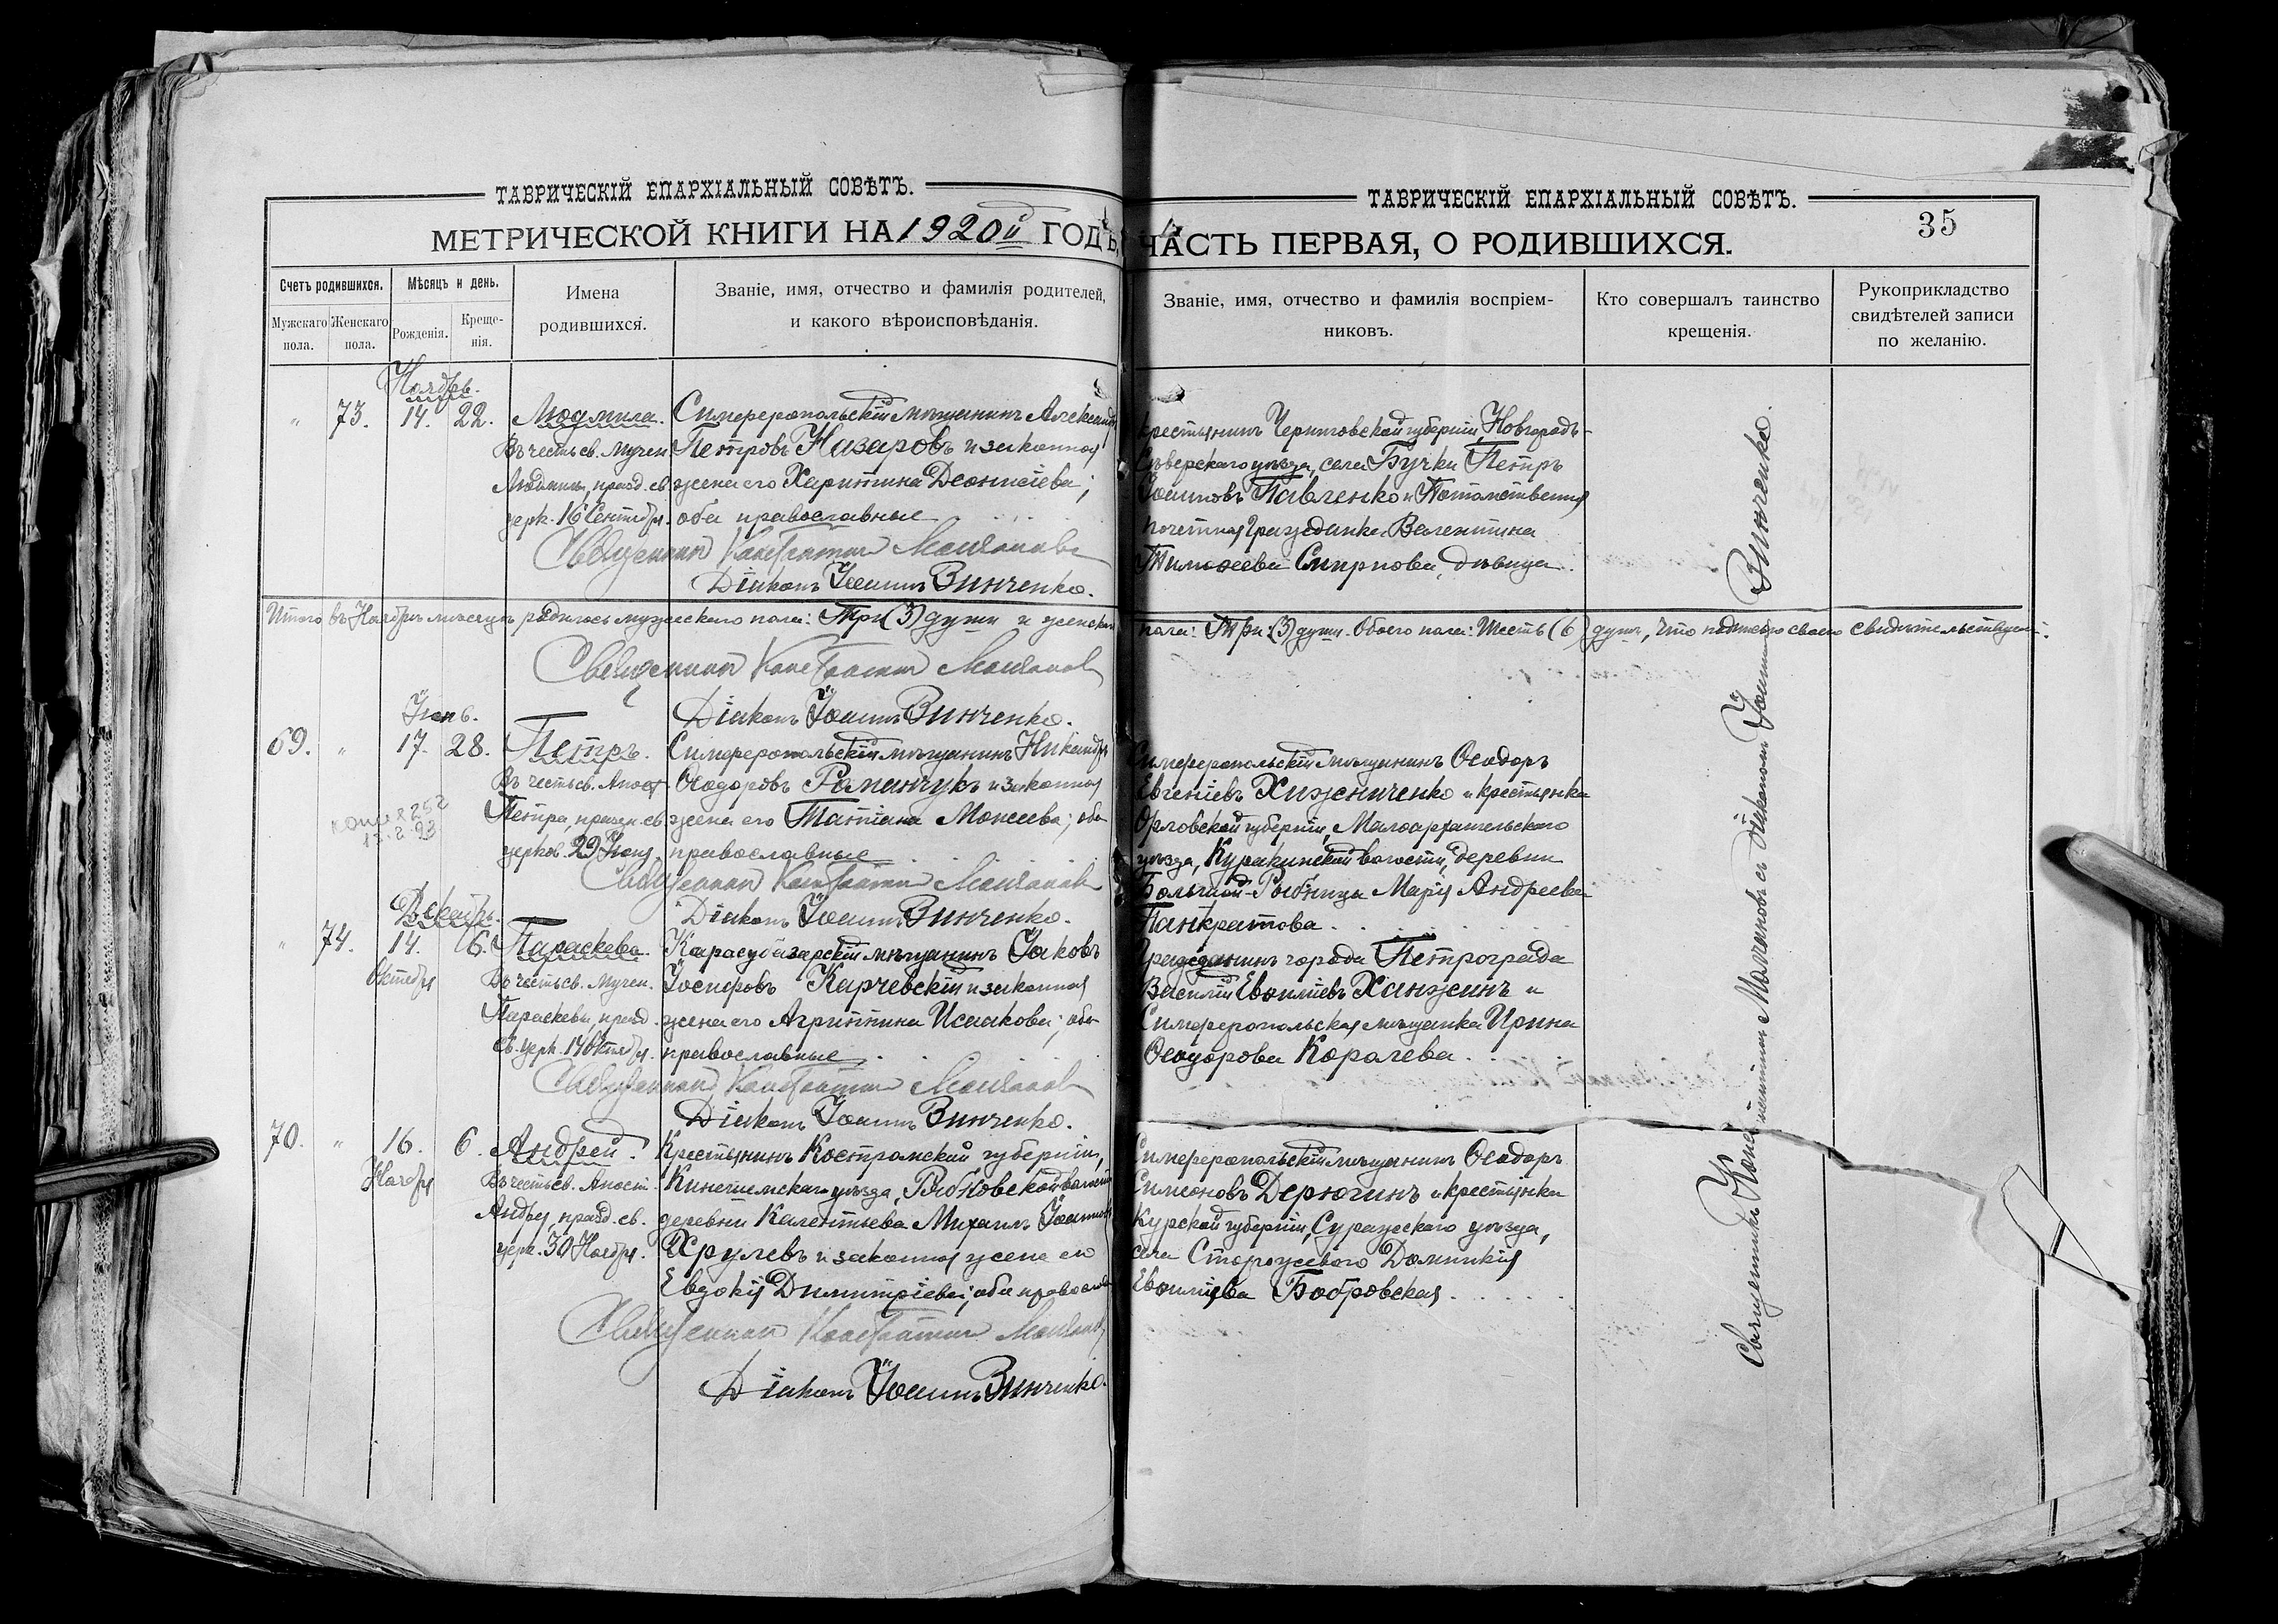 ТАВРИЧЕСКІЙ ЕПАРХІАЛЬНЫЙ СОВѢТЪ.
МЕТРИЧЕСКОЙ КНИГИ НА 1920й ГОДЪ,
Счетъ родившихся.
Мужскаго пола.
Женскаго пола.
Мѣсяцъ и день.
Рожденія.
Крещенія.
Имена
родившихся.
Званіе, имя, отчество и фамилія родителей,
и какого вѣроисповѣданія.
Ноябрь.
" 73. 14. 22. Людмила. Симферопольскій мѣщанинъ Александръ
Въ честь св. мучен. Петровъ Назаровъ и законная
Людмилы, празд. св. жена его Харитина Леонтіева;
церк. 16 Сентября. оба православные
Священникъ Константинъ Молчановъ
Діаконъ Іоаннъ Винченко.
Итого въ Ноябрѣ мѣсяцѣ родилось мужескаго пола: Три (3) души и женскаго
Священникъ Константинъ Молчановъ
Діаконъ Іоаннъ Винченко.
Іюнь.
69. " 17. 28. Петръ. Симферопольскій мѣщанинъ Никандръ
Въ честь св. Апост. Ѳеодоровъ Романчукъ и законная
Петра, празд. св. жена его Татіана Моисеева; оба
церков. 29 Іюня. православные
копия 252
Священникъ Константинъ Молчановъ
Діаконъ Іоаннъ Винченко.
Декабрь.
" 74. 14. 6. Параскева. Карасубазарскій мѣщанинъ Іаковъ
Октября Въ честь св. Мучен. Іосифовъ Карчевскій и законная
Параскевы, празд. жена его Агриппина Исаакова; оба
св. церк. 14 Октября. православные
Священникъ Константинъ Молчановъ
Діаконъ Іоаннъ Винченко.
70. " 16. 6. Андрей. Крестьянинъ Костромской губерніи,
Ноября Въ честь св. Апост. Кинешемскаго уѣзда, волости
Андрея, празд. св. деревни Калентьева Михаилъ Іоанновъ
церк. 30 Ноября. Хрулевъ и законная жена его
Евдокія Димитріева; оба православ
Священникъ Константинъ Молчановъ
Діаконъ Іоаннъ Винченко.
ТАВРИЧЕСКІЙ ЕПАРХІАЛЬНЫЙ СОВѢТЪ.
35
ЧАСТЬ ПЕРВАЯ, О РОДИВШИХСЯ.
Званіе, имя, отчество и фамилія воспріем-
никовъ.
Кто совершалъ таинство
крещенія.
Рукоприкладство
свидѣтелей записи
по желанію.
крестьянинъ Черниговской губерніи, Новгородъ-
Сѣверскаго уѣзда, села Бучки Петръ
Іоанновъ Павленко и Потомственная
почетная Гражданка Валентина
Тимоѳеева Смирнова, дѣвица.
пола: Три (3) души. Обоего пола: Шесть (6) душъ, что подписью своею свидѣтельствуемъ.
Симферопольскій мѣщанинъ Ѳеодоръ
Евгеніевъ Хижниченко и крестьянка
Орловской губерніи, Малоархангельскаго
уѣзда, Куракинской волости, деревни
Большой-Рыбницы Марія Андреева
Панкратова.
Гражданинъ города Петрограда
Василій Евѳиміевъ Ханжинъ и
Симферопольская мѣщанка Ирина
Ѳеодорова Королева.
Симферопольскій мѣщанинъ Ѳеодоръ
Симеоновъ Дерюгинъ и крестьянка
Курской губерніи, Суражскаго уѣзда,
села Сторожевого Домникія
Евѳиміева Бобровская.
Священникъ Константинъ Молчановъ съ діакономъ Іоанномъ Винченко